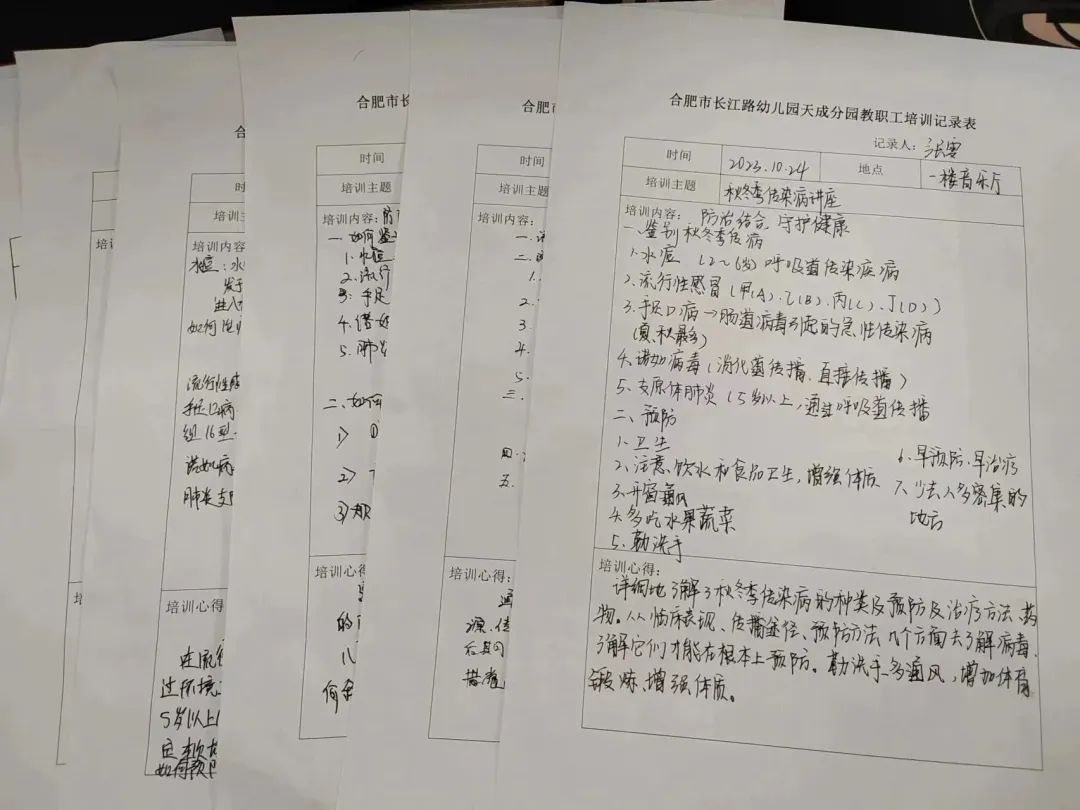 合肥市长江路幼儿园天成分园教职工培训记录表
记录人：张雯
时间 2023.10.24 地点 一楼音乐厅
培训主题 秋冬季传染病讲座
培训内容： 防治结合 守护健康
一、鉴别秋冬季传病
1.水痘 (2~6岁) 呼吸道传染疾病
2.流行性感冒(甲(A).乙(B).丙(C).丁(D))
3.手足口病→肠道病毒引起的急性传染病
(夏.秋最多)
4.诺如病毒(消化道传播.直接传播)
5.支原体肺炎(5岁以上,通过呼吸道传播
二、预防
1.卫生
2.注意饮水和食品卫生,增强体质
3.开窗通风
4.多吃水果蔬菜
5.勤洗手
6.早预防.早治疗
7.少去人多密集的
地方
培训心得：
详细地了解了秋冬季传染病的种类及预防及治疗方法、药
物。从临床表现、传播途径、预防方法几个方面去了解病毒.
了解它们才能在根本上预防。勤洗手、多通风,增加体育
锻炼、增强体质。
时间
培训主题
培训内容：
一.
二.
1.
2.
3.
4.
5.
三.
四.
五.
培训心得：
通
源.传
合肥市长
时间
培训主题
培训内容：防
一.如何鉴
1.水痘
2.流行
3.手足
4.诺如
5.肺炎
二、如何
1>
2>
培训心得
的
合
时
培训主
培训内容
水痘：水
发于
进入
如何
流行性感
手足口病
组16型
诺如病
肺炎支
培训心得
在流行
过环境
5岁以上
如何预防
培
培